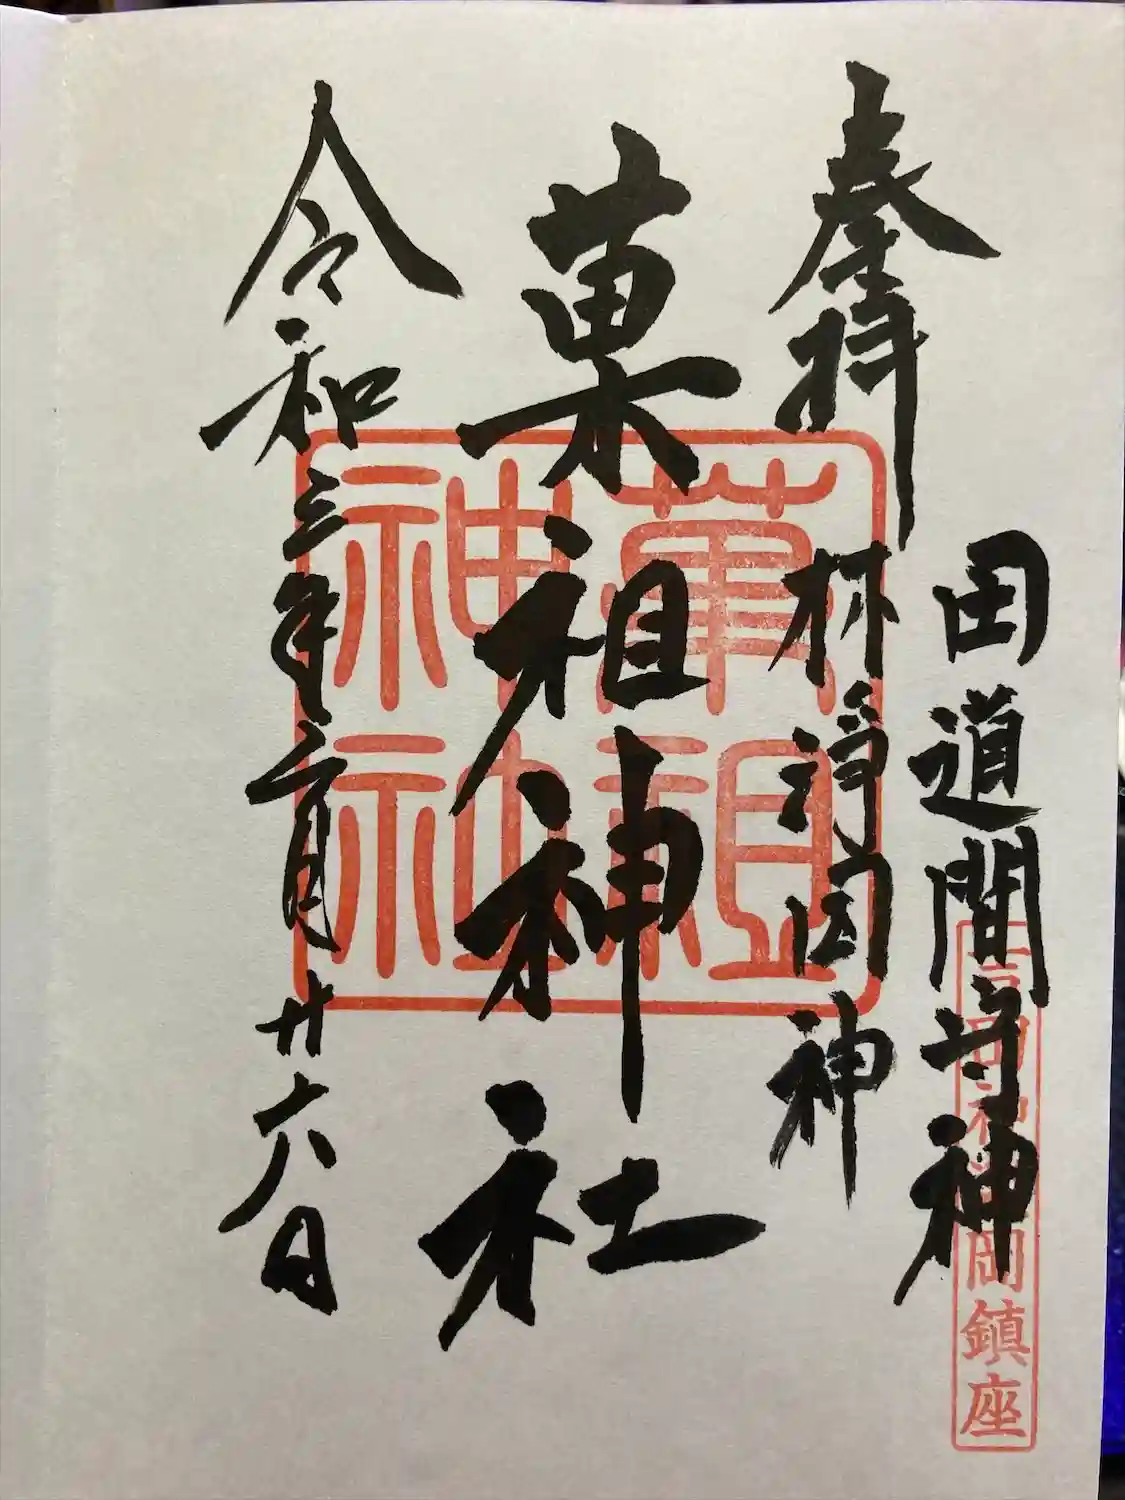 奉拝
田道間守神
林淨因神
菓祖神社
令和三年二月廿六日
菓祖神社
吉田神楽岡鎮座